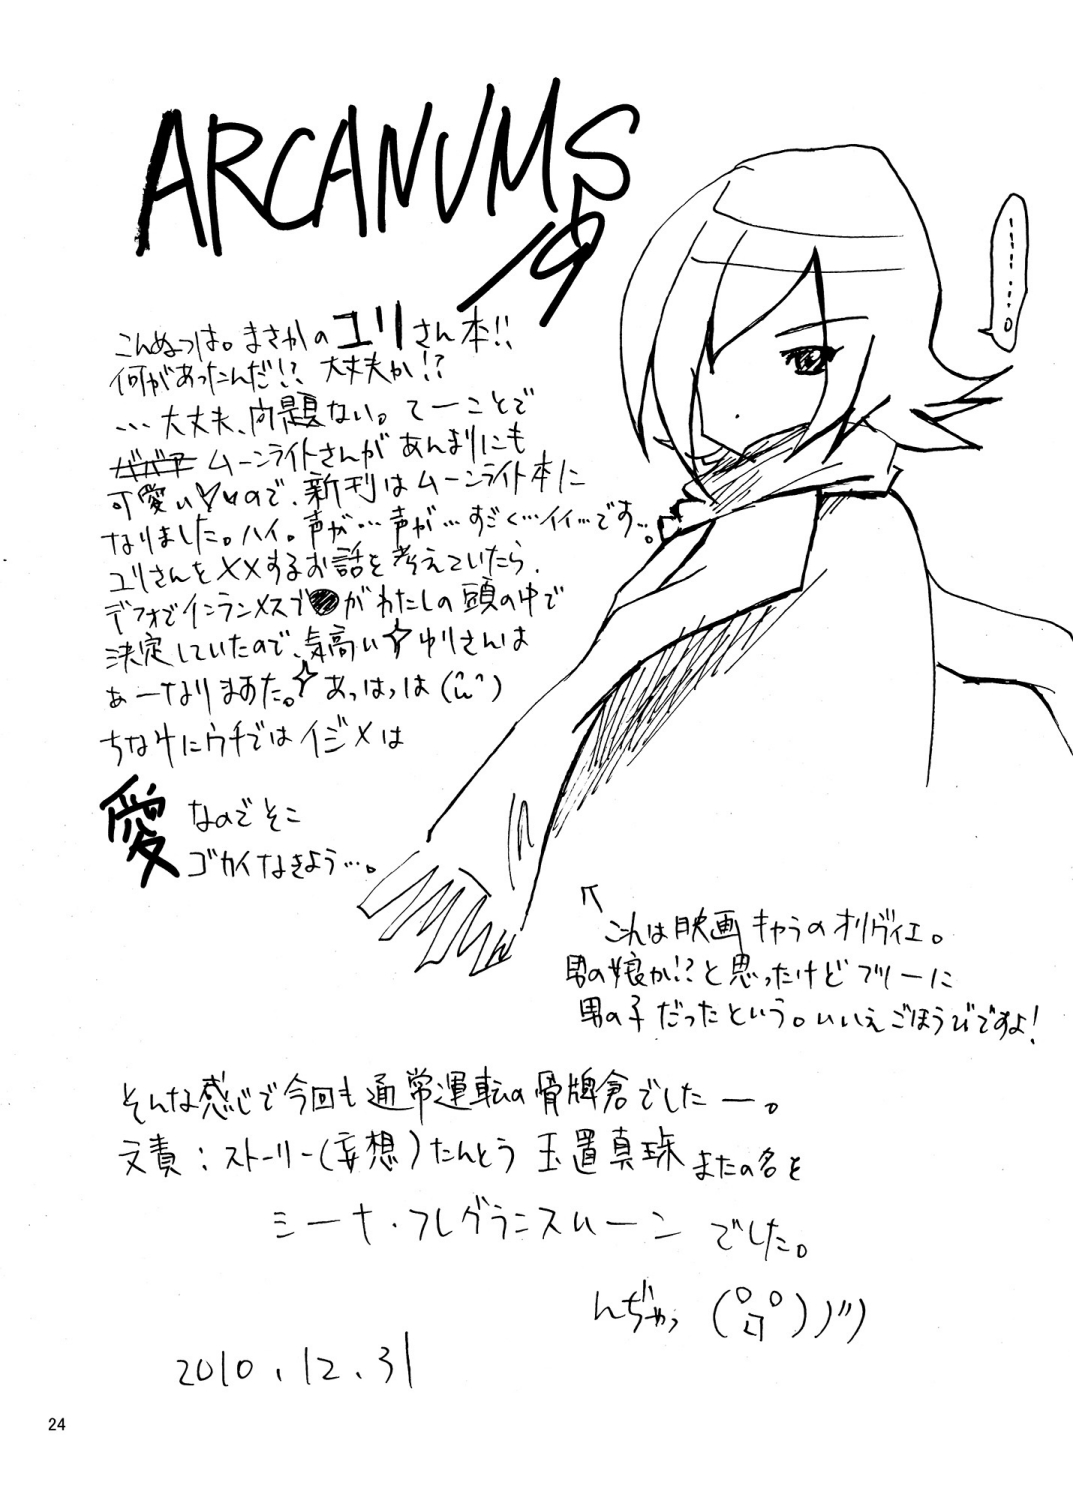 ARCANUMS
19
こんぬつは。まさかのユリさん本!!
何があったんだ!? 大丈夫か!?
…大丈夫、問題ない。てーことで
ババア ムーンライトさんがあんまりにも
可愛い♥♥ので、新刊はムーンライト本に
なりました。ハイ。声が…声が…すごく…イイ…です…。
ユリさんを××するお話を考えていたら、
デフォでインランメスで●がわたしの頭の中で
決定していたので、気高い☆ゆりさんは
ぁーなりまあた。☆あっはっは(^ω^)
ちなみにウチではイジメは
愛なのでそこ
ゴカイなきよう…。
………。
↑これは映画キャラのオリヴィエ。
男の娘か!?と思ったけどフツーに
男の子だったという。いいえごほうびですよ!
そんな感じで今回も通常運転の骨牌倉でしたー。
文責:ストーリー(妄想)たんとう 玉置真珠 またの名を
シーナ・フレグランスムーン でした。
んぢゃっ
2010.12.31
24